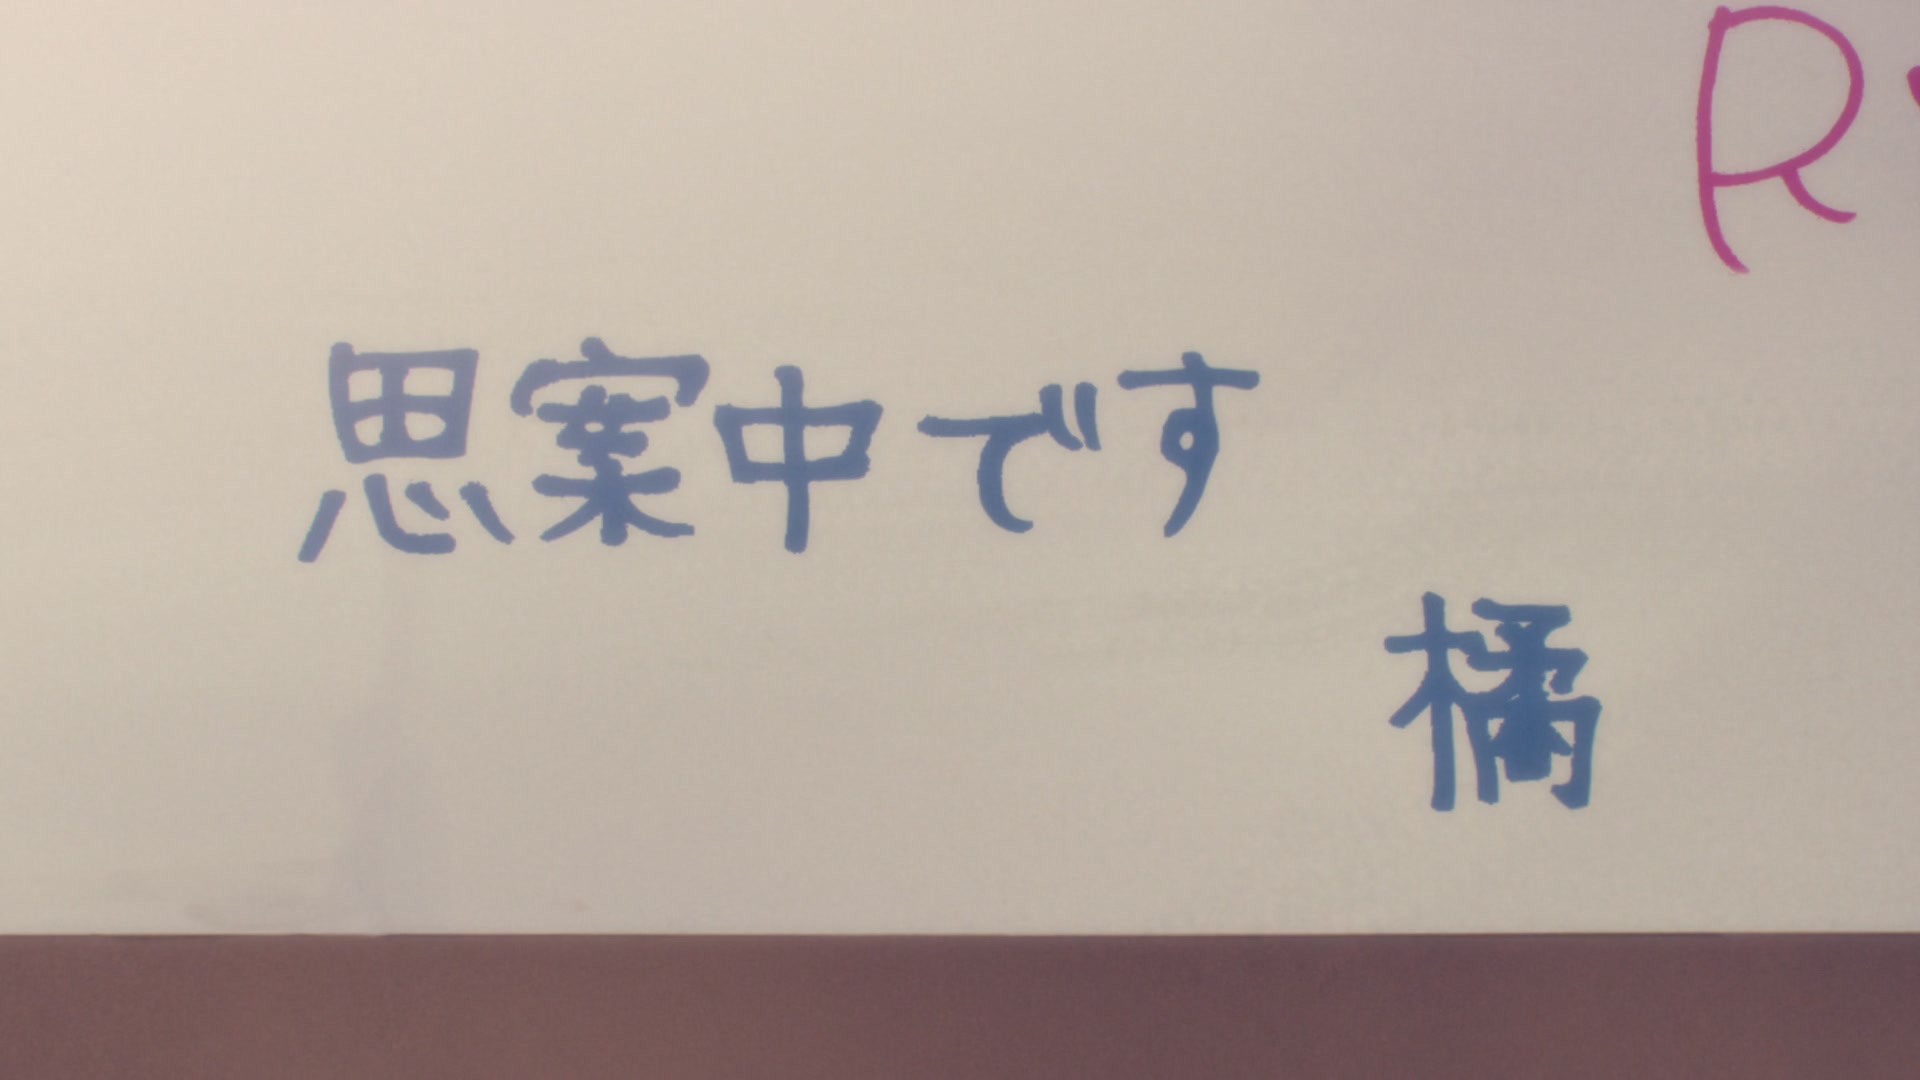 R
思案中です
橘